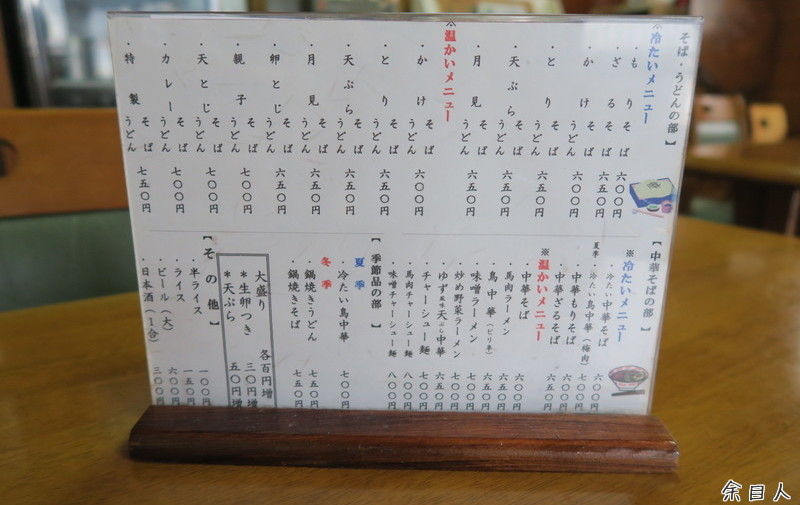 そば・うどんの部】
※冷たいメニュー
・もりそば 六〇〇円
・ざるそば 六五〇円
・かけそばうどん 六〇〇円
・とりそばうどん 六五〇円
・天ぷらそばうどん 六五〇円
・月見そばうどん 六五〇円
※温かいメニュー
・かけそばうどん 六〇〇円
・とりそばうどん 六五〇円
・天ぷらそばうどん 六五〇円
・月見そばうどん 六五〇円
・卵とじそばうどん 六五〇円
・親子そばうどん 七〇〇円
・天とじそばうどん 七〇〇円
・カレーそばうどん 七〇〇円
・特製そばうどん 七五〇円
【中華そばの部】
※冷たいメニュー
夏季・冷たい中華そば 六〇〇円
・冷たい鳥中華(梅肉) 七〇〇円
・中華もりそば 六〇〇円
・中華ざるそば 六五〇円
※温かいメニュー
・中華そば 六〇〇円
・馬肉ラーメン 六五〇円
・鳥中華(ピリ辛) 六五〇円
・味噌ラーメン 七〇〇円
・炒め野菜ラーメン 七〇〇円
・ゆず風味天ぷら中華 六五〇円
・チャーシュー麺 七〇〇円
・馬肉チャーシュー麺 八〇〇円
・味噌チャーシュー麺 八〇〇円
【季節品の部】
夏季
・冷たい鳥中華 七〇〇円
冬季
・鍋焼きうどん 七五〇円
・鍋焼きそば 七五〇円
大盛り 各百円増
*生卵つき 三〇円増
*天ぷら 五〇円増
【その他】
・半ライス 一〇〇円
・ライス 一五〇円
・ビール(大) 六〇〇円
・日本酒(1合) 三〇〇円
余目人